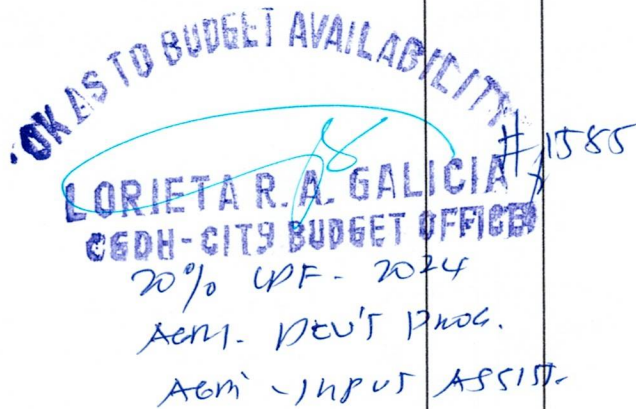 OK AS TO BUDGET AVAILABILITY
#1585
LORIETA R. A. GALICIA
CGDH-CITY BUDGET OFFICER
20% LDF - 2024
AGRI. DEV'T PROG.
AGRI - INPUT ASSIST.